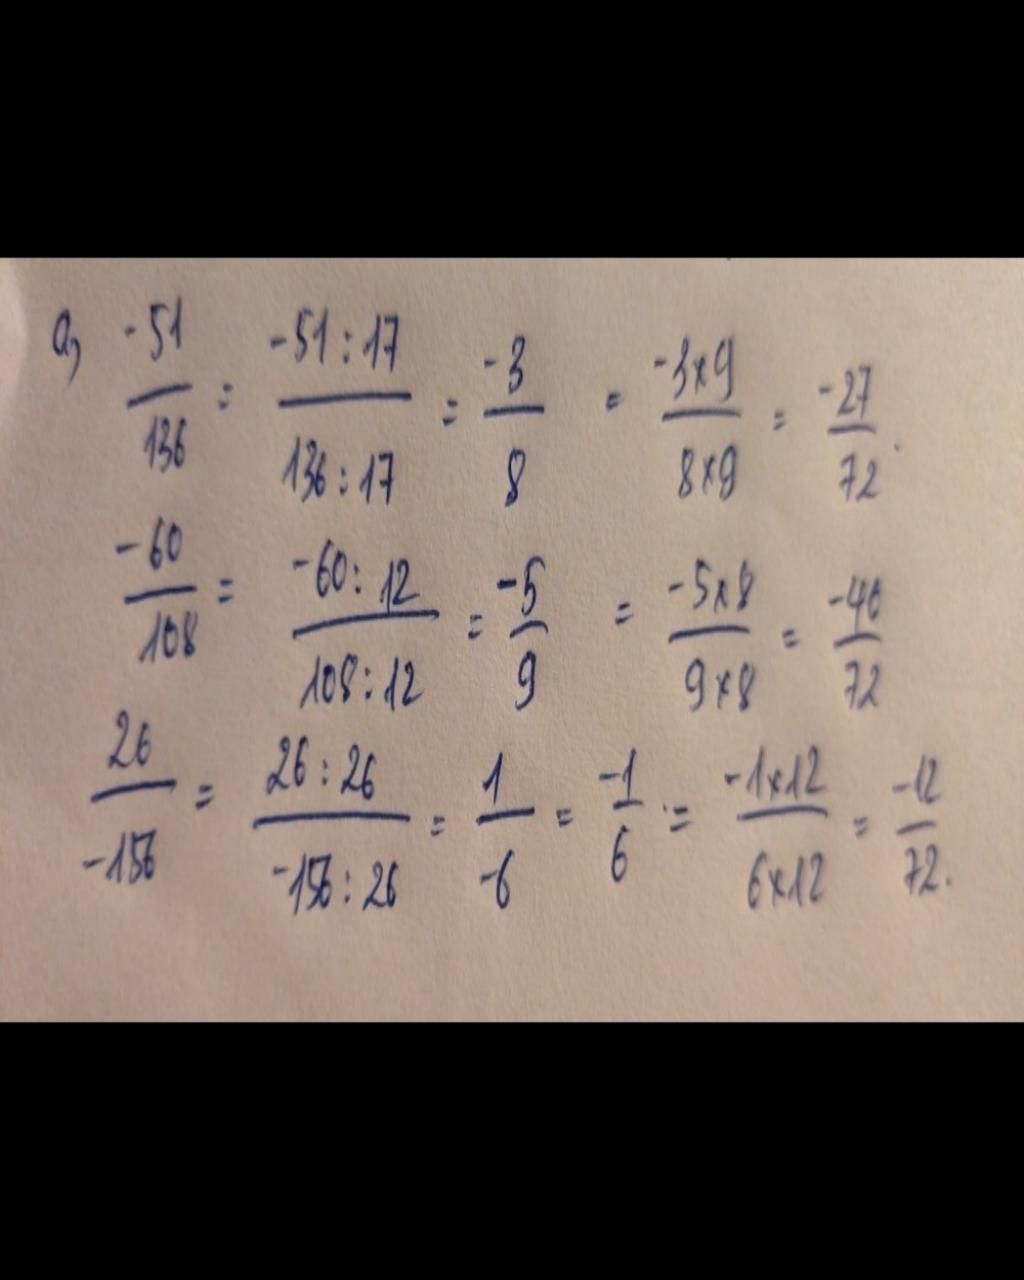 a, -51/136 = -51:17/136:17 = -3/8 = -3x9/8x9 = -27/72.
-60/108 = -60:12/108:12 = -5/9 = -5x8/9x8 = -40/72
26/-156 = 26:26/-156:26 = 1/-6 = -1/6 = -1x12/6x12 = -12/72.